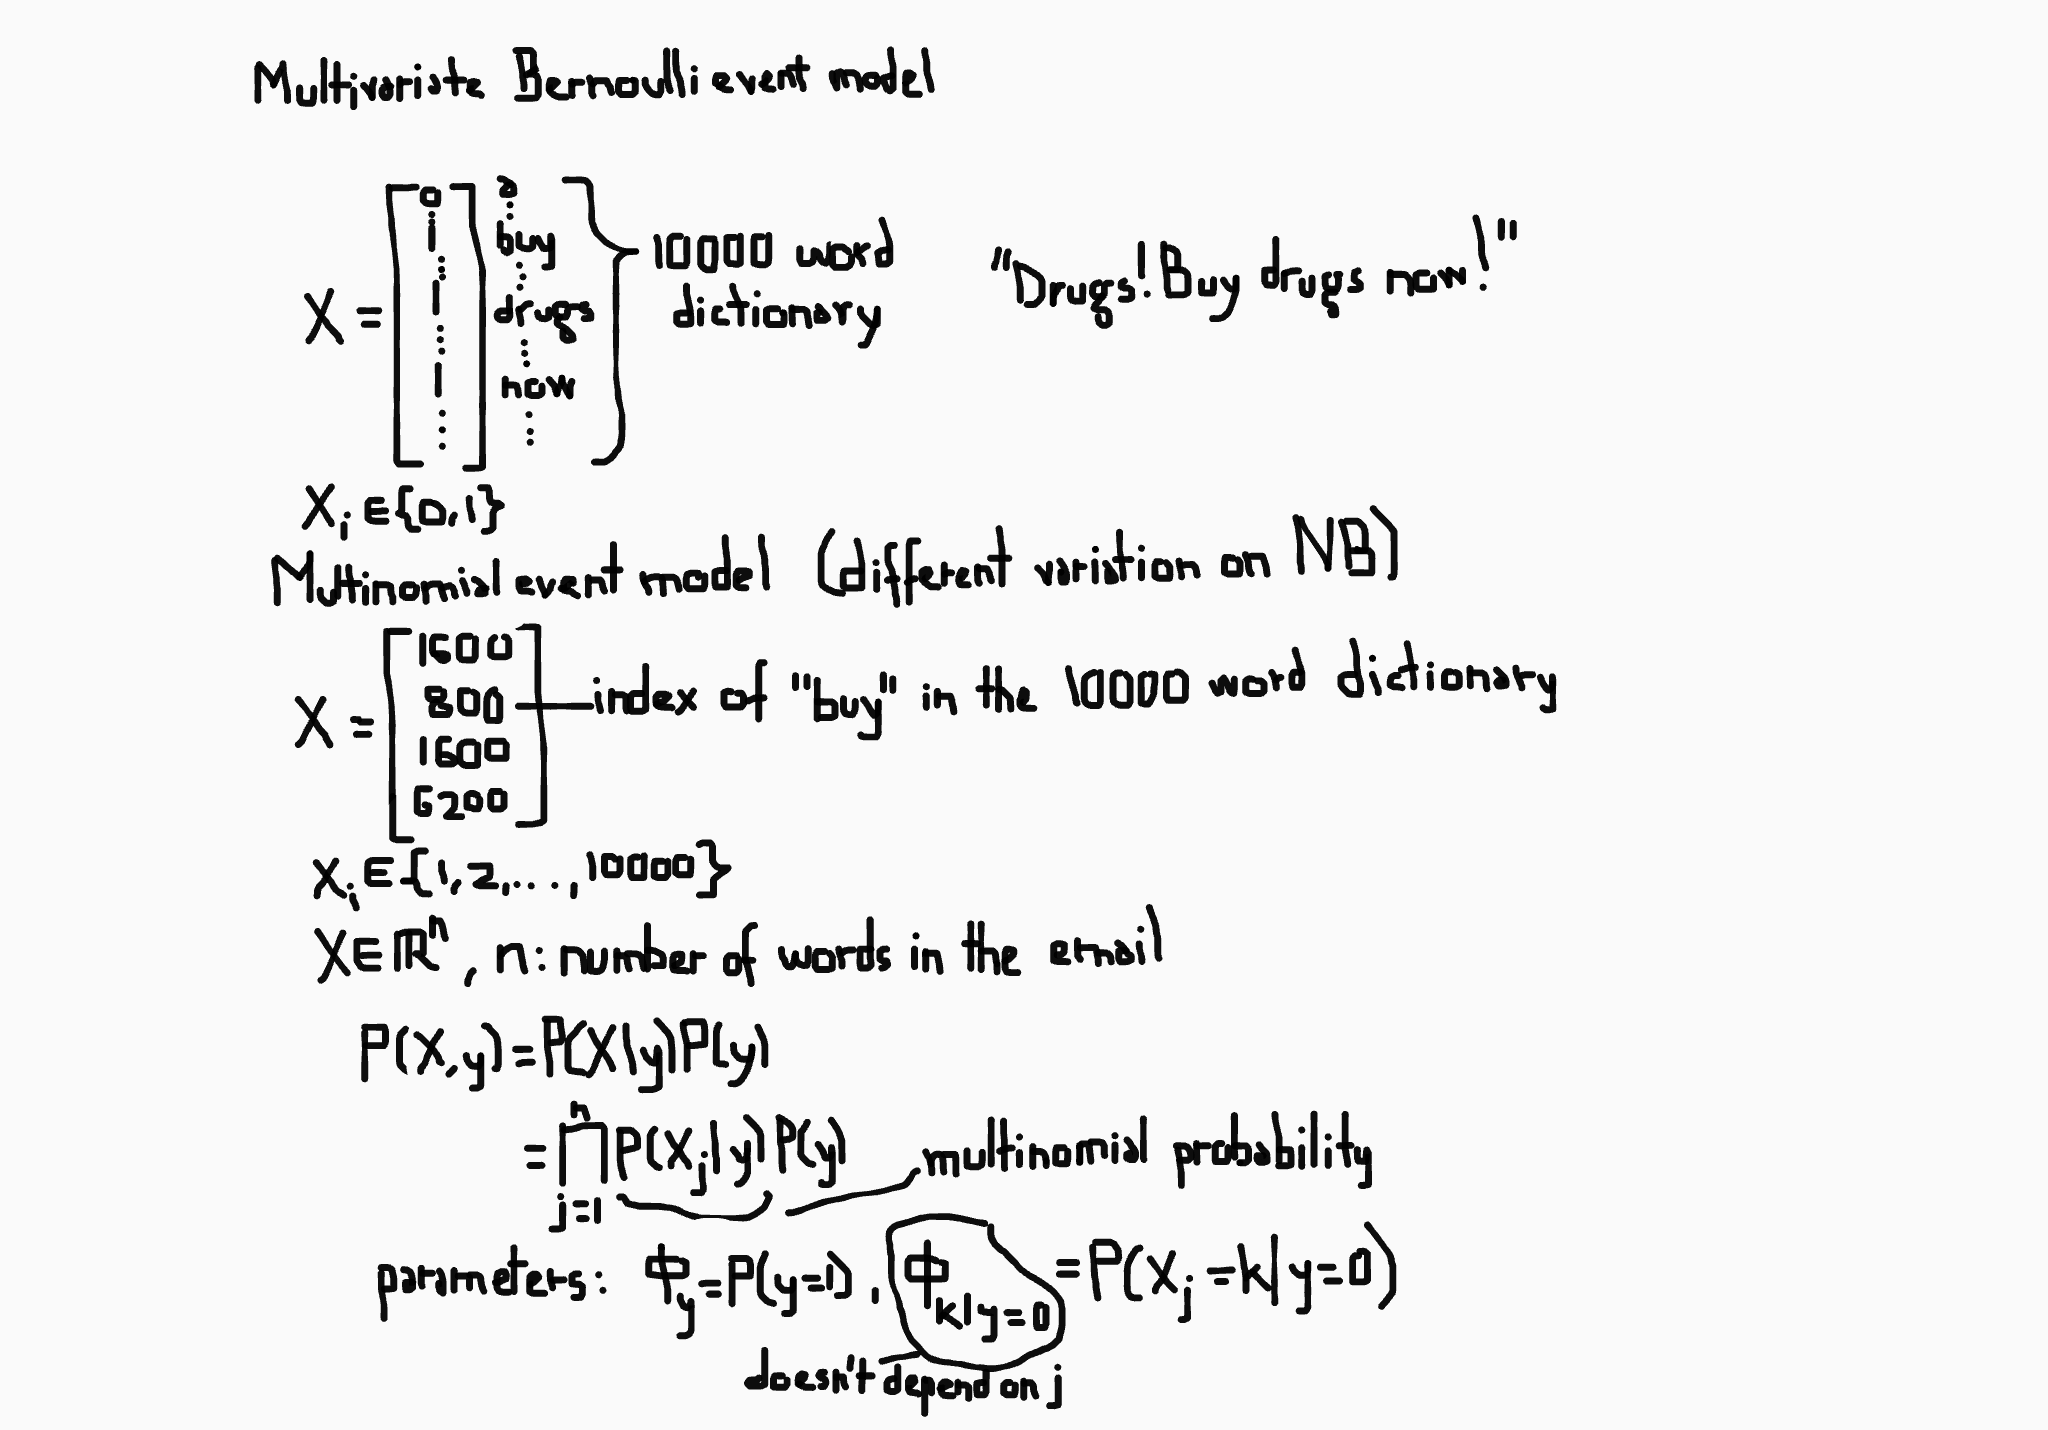 Multivariate Bernoulli event model
X = [0 ⋮ 1 ⋮ 1 ⋮ 1 ⋮] a ⋮ buy ⋮ drugs ⋮ now ⋮ } 10000 word dictionary
"Drugs! Buy drugs now!"
Xᵢ ∈ {0,1}
Multinomial event model (different variation on NB)
X = [1600 800 1600 6200] — index of "buy" in the 10000 word dictionary
xᵢ ∈ {1,2,...,10000}
X ∈ ℝⁿ, n: number of words in the email
P(X,y) = P(X|y)P(y)
= ∏ⁿⱼ₌₁ P(Xⱼ|y) P(y) multinomial probability
parameters: Φ_y = P(y=1), Φ_{k|y=0} = P(Xⱼ = k|y=0)
doesn't depend on j